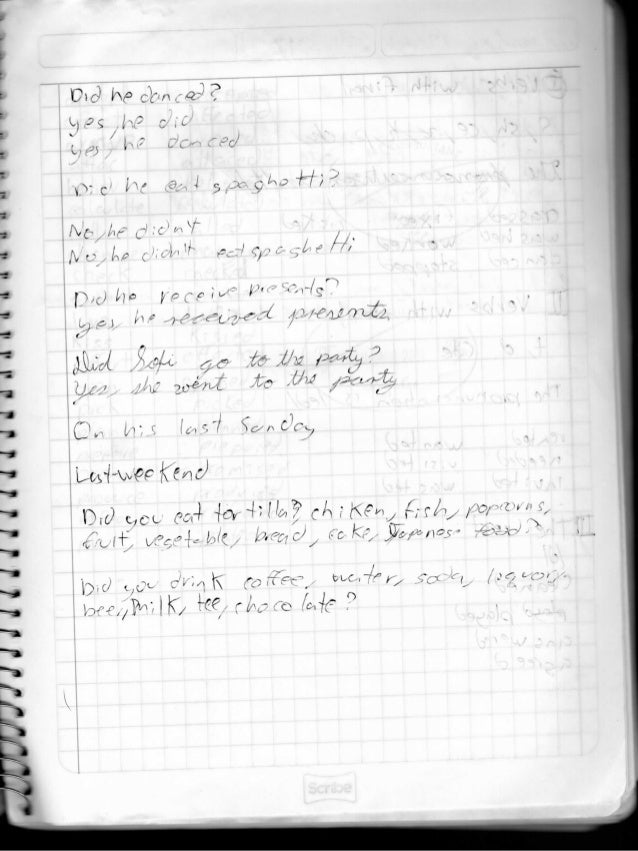 Did he danced?
yes, he did
yes, he danced
Did he eat spaghetti?
No, he didn't
No, he didn't eat spaghetti
Did he receive presents?
yes, he received presents
Did Sofi go to the party?
yes, she went to the party
On his last Sunday
Last weekend
Did you eat tortilla? chiken, fish, popcorns,
fruit, vegetable, bread, cake, Japanese food?
Did you drink coffee, water, soda, liquor,
beer, milk, tee, chocolate?
Scribe